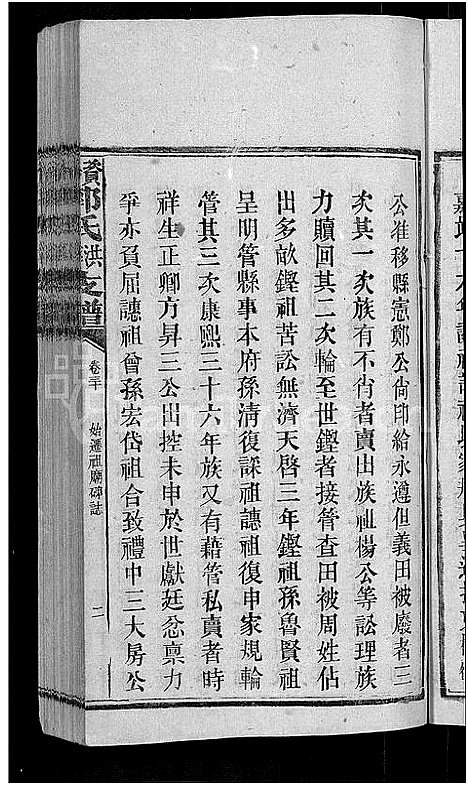 公准移縣憲鄭公尙印給永遵但義田被廢者三
次其一次族有不肖者賣出族祖楊公等訟理族
力贖回其二次輪至世鏗者接管查田被周姓佔
出多畝鏗祖苦訟無濟天啓三年鏗祖孫魯賢祖
呈明管縣事本府孫清復諃祖譓祖復申家規輪
管其三次康熙三十六年族又有藉管私賣者時
祥生正卿方昇三公出控未申於世獻廷忿稟力
爭亦負屈譓祖曾孫宏岱祖合致禮中三大房公
資鄒氏洪支譜
卷三十
始遷祖廟碑誌
二